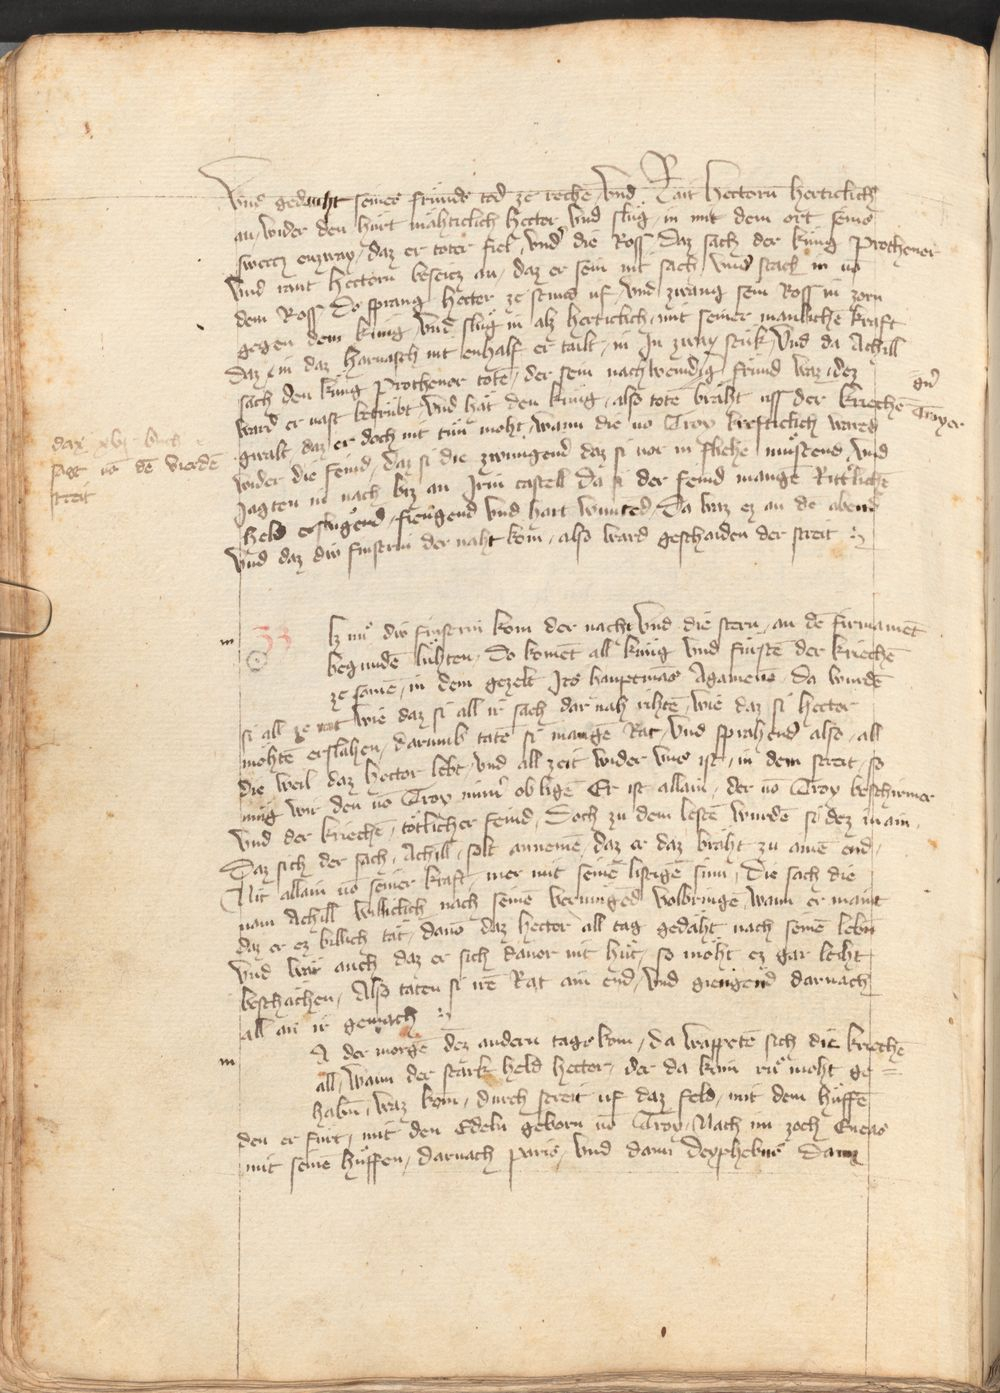 Vnd gedacht seines fründs tod ze rechē, Vnd Rait Hectorn herticlich
an, wider den hürt mähticlich Hector, Vnd slůg in mit dem ort seins
swertz enzway, daz er toter fiel, Vnd die Ross Daz sach der küng Prothenor
Vnd rant Hectorn beseitz an, daz er sein nit sach, Vnd stach in vō
dem Ross Do sprang Hector ze stund vf, Vnd zwang sein Ross in zorn
gegen dem küng, Vnd slůg in alz herticlich, mit seiner manlichē kraft
Daz in daz Harnasch nit enhalf er tailt in In zway stuk, Vnd da Achill
sach den küng Prothenor totē, der sein nachwendig fründ waz, dez
ward er vast betrübt, Vnd hät den küng, also tote bräht uss der kriechē
Troyer
gwalt, daz er doch nit tůn moht, wann die vō Troy krefticlich warend
wider die feind, daz si die zwungend daz si vor in fliehē můstend, Vnd
Jagten in nach biz an Jriu castell Da si der feind mangē Ritt'lichē
held erslůgend, fiengend Vnd hart wunted, Da waz ez an dē abend
Vnd daz div finstrin der naht kom, also ward geschaiden der streit
daz xvj buch
sagt vō dē vierdē
streit
33
Iz nů div finstrin kom der nacht Vnd die stern, an dē firmamēt
begundē lühten, Do komēt all küng Vnd fürstē der kriechē
ze samē, in dem gezelt Irs hauptmās Agamenō, Da wurdē
si all ze rat wie daz si all ir sach dar nah rihtē, wie daz si Hector
möhtē erslahen, darumb tatē si mangē Rat, Vnd sprachend also, all
die weil daz Hector lebt, Vnd all zeit wider vns ist, in dem streit, so
müg wir den vō Troy nim' ob ligē Er ist allain, der vō Troy beschirmer
Vnd der kriechē, tötlicher feind, Doch zu dem lestē wurdē si dez in ain,
Daz sich der sach, Achill, solt annemē, daz er daz bräht zu ainē end,
Nit allain vō seiner kraft, mer mit seinē listigē sinn, Die sach die
nam Achill williclich nach seinē vermügēd volbringē, wann er maint
daz er ez billich tät, dauō daz Hector all tag gedäht nach seinē lebn
Vnd wär auch daz er sich dauor nit hůt, so möht ez gar leiht
beschähen, Also taten si irē Rat ain end, Vnd giengend darnach
all an ir gemach
A der morgē dez andern tags kom, da wappetē sich die kriechē
all, wann der stark held Hector, der da kain rů moht ge=
habn, waz kom, durch streit vf daz feld, mit dem hüffē
den er fürt, mit den Edeln geborn vō Troy, Nach im zoch Eneas
mit seinē hüffen, darnach Paris, Vnd dann Deyphebus Dann